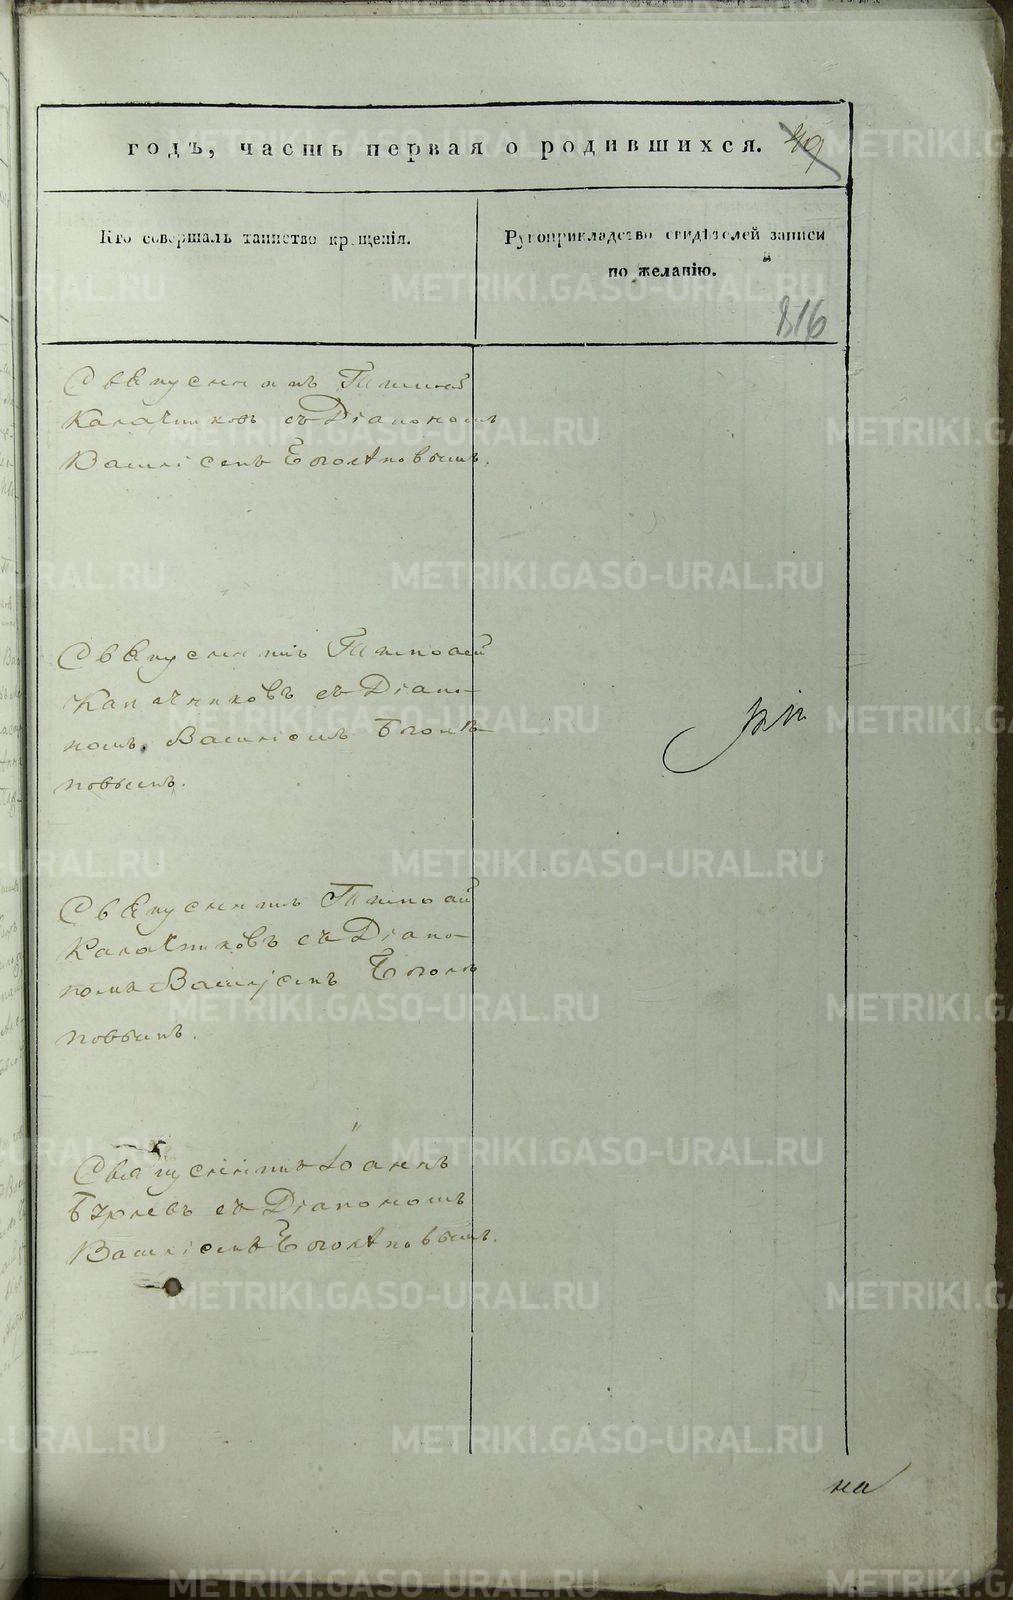 годъ, часть первая о родившихся. 49
Кто совершалъ таинство крещенія.
Рукоприкладство свидѣтелей записи
по желанію.
816
Священникъ Тимоѳей
Калачниковъ съ Діакономъ
Василіемъ Боголѣповымъ.
Священникъ Тимоѳей
Калачниковъ съ Діако-
номъ Василіемъ Боголѣ-
повымъ.
Священникъ Тимоѳей
Калачниковъ съ Діако-
номъ Василіемъ Боголѣ
повымъ.
Священникъ Іоаннъ
съ Діакономъ
Василіемъ Боголѣповымъ.
на
METRIKI.GASO-URAL.RU